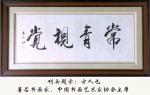 常青視觉
刊头题字：方人也
著名书画家，中国书画艺术家协会主席